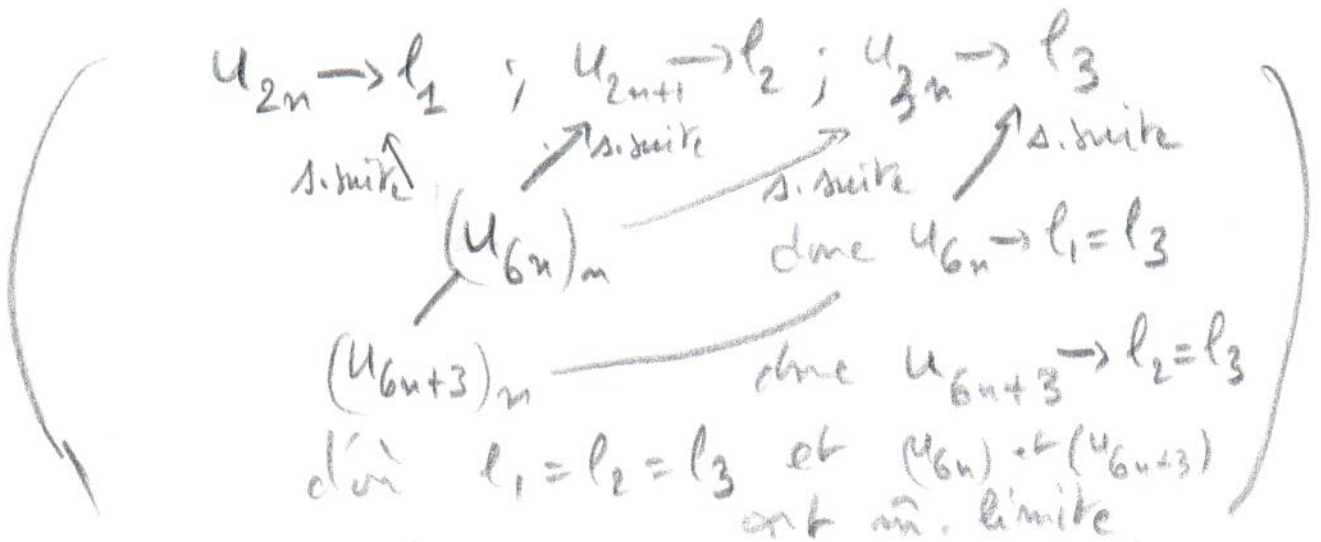 u_{2n} → l_1 ; u_{2n+1} → l_2 ; u_{3n} → l_3
s.suite s.suite s.suite s.suite
(u_{6n})_n donc u_{6n} → l_1 = l_3
(u_{6n+3})_n donc u_{6n+3} → l_2 = l_3
d'où l_1 = l_2 = l_3 et (u_{6n}) et (u_{6n+3})
ont m̂. limite